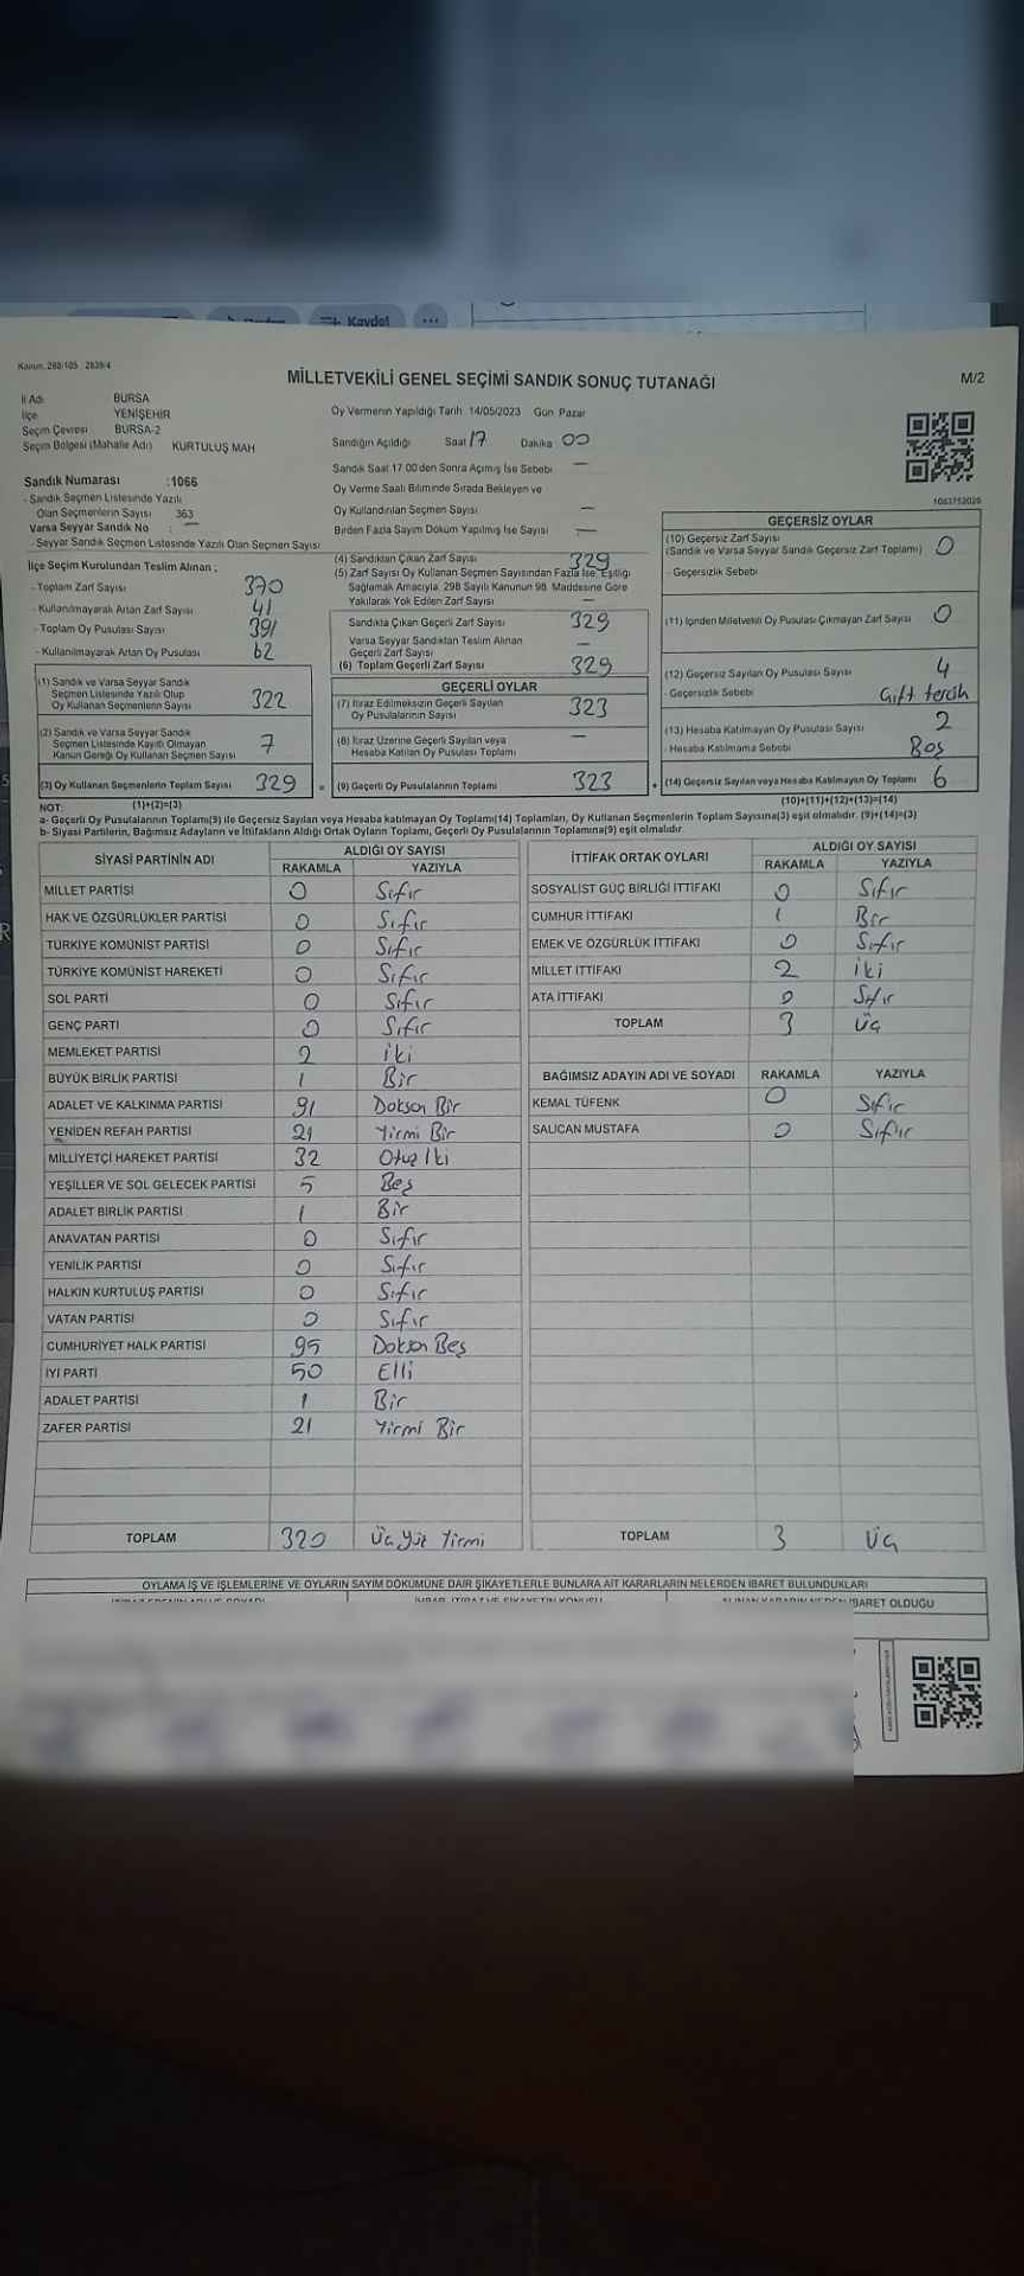 Kaydet ...
Kanun: 298/105 2839/4
MİLLETVEKİLİ GENEL SEÇİMİ SANDIK SONUÇ TUTANAĞI
M/2
İl Adı BURSA
İlçe YENİŞEHİR
Seçim Çevresi BURSA-2
Seçim Bölgesi (Mahalle Adı) KURTULUŞ MAH
Sandık Numarası :1066
- Sandık Seçmen Listesinde Yazılı
Olan Seçmenlerin Sayısı 363
Varsa Seyyar Sandık No : —
- Seyyar Sandık Seçmen Listesinde Yazılı Olan Seçmen Sayısı
İlçe Seçim Kurulundan Teslim Alınan ;
- Toplam Zarf Sayısı 370
- Kullanılmayarak Artan Zarf Sayısı 41
- Toplam Oy Pusulası Sayısı 391
- Kullanılmayarak Artan Oy Pusulası 62
(1) Sandık ve Varsa Seyyar Sandık
Seçmen Listesinde Yazılı Olup
Oy Kullanan Seçmenlerin Sayısı 322
(2) Sandık ve Varsa Seyyar Sandık
Seçmen Listesinde Kayıtlı Olmayan
Kanun Gereği Oy Kullanan Seçmen Sayısı 7
(3) Oy Kullanan Seçmenlerin Toplam Sayısı 329 =
Oy Vermenin Yapıldığı Tarih 14/05/2023 Gün Pazar
Sandığın Açıldığı Saat 17 Dakika 00
Sandık Saat 17 00'den Sonra Açımış İse Sebebi —
Oy Verme Saati Bitiminde Sırada Bekleyen ve
Oy Kullandırılan Seçmen Sayısı —
Birden Fazla Sayım Döküm Yapılmış İse Sayısı —
(4) Sandıktan Çıkan Zarf Sayısı 329
(5) Zarf Sayısı Oy Kullanan Seçmen Sayısından Fazla İse, Eşitliği
Sağlamak Amacıyla, 298 Sayılı Kanunun 98. Maddesine Göre
Yakılarak Yok Edilen Zarf Sayısı —
Sandıkta Çıkan Geçerli Zarf Sayısı 329
Varsa Seyyar Sandıktan Teslim Alınan
Geçerli Zarf Sayısı —
(6) Toplam Geçerli Zarf Sayısı 329
GEÇERLİ OYLAR
(7) İtiraz Edilmeksizin Geçerli Sayılan
Oy Pusulalarının Sayısı 323
(8) İtiraz Üzerine Geçerli Sayılan veya
Hesaba Katılan Oy Pusulası Toplamı —
(9) Geçerli Oy Pusulalarının Toplamı 323 +
1063752026
GEÇERSİZ OYLAR
(10) Geçersiz Zarf Sayısı
(Sandık ve Varsa Seyyar Sandık Geçersiz Zarf Toplamı) 0
- Geçersizlik Sebebi
(11) İçinden Milletvekili Oy Pusulası Çıkmayan Zarf Sayısı 0
(12) Geçersiz Sayılan Oy Pusulası Sayısı 4
- Geçersizlik Sebebi Çift tercih
(13) Hesaba Katılmayan Oy Pusulası Sayısı 2
- Hesaba Katılmama Sebebi Boş
(14) Geçersiz Sayılan veya Hesaba Katılmayan Oy Toplamı 6
NOT: (1)+(2)=(3) (10)+(11)+(12)+(13)=(14)
a- Geçerli Oy Pusulalarının Toplamı(9) ile Geçersiz Sayılan veya Hesaba katılmayan Oy Toplamı(14) Toplamları, Oy Kullanan Seçmenlerin Toplam Sayısına(3) eşit olmalıdır. (9)+(14)=(3)
b- Siyasi Partilerin, Bağımsız Adayların ve İttifakların Aldığı Ortak Oyların Toplamı, Geçerli Oy Pusulalarının Toplamına(9) eşit olmalıdır.
SİYASİ PARTİNİN ADI ALDIĞI OY SAYISI
RAKAMLA YAZIYLA
MİLLET PARTİSİ 0 Sıfır
HAK VE ÖZGÜRLÜKLER PARTİSİ 0 Sıfır
TÜRKİYE KOMÜNİST PARTİSİ 0 Sıfır
TÜRKİYE KOMÜNİST HAREKETİ 0 Sıfır
SOL PARTİ 0 Sıfır
GENÇ PARTİ 0 Sıfır
MEMLEKET PARTİSİ 2 iki
BÜYÜK BİRLİK PARTİSİ 1 Bir
ADALET VE KALKINMA PARTİSİ 91 Doksan Bir
YENİDEN REFAH PARTİSİ 21 Yirmi Bir
MİLLİYETÇİ HAREKET PARTİSİ 32 Otuz İki
YEŞİLLER VE SOL GELECEK PARTİSİ 5 Beş
ADALET BİRLİK PARTİSİ 1 Bir
ANAVATAN PARTİSİ 0 Sıfır
YENİLİK PARTİSİ 0 Sıfır
HALKIN KURTULUŞ PARTİSİ 0 Sıfır
VATAN PARTİSİ 0 Sıfır
CUMHURİYET HALK PARTİSİ 95 Doksan Beş
İYİ PARTİ 50 Elli
ADALET PARTİSİ 1 Bir
ZAFER PARTİSİ 21 Yirmi Bir
TOPLAM 320 Üç Yüz Yirmi
İTTİFAK ORTAK OYLARI ALDIĞI OY SAYISI
RAKAMLA YAZIYLA
SOSYALİST GÜÇ BİRLİĞİ İTTİFAKI 0 Sıfır
CUMHUR İTTİFAKI 1 Bir
EMEK VE ÖZGÜRLÜK İTTİFAKI 0 Sıfır
MİLLET İTTİFAKI 2 iki
ATA İTTİFAKI 0 Sıfır
TOPLAM 3 Üç
BAĞIMSIZ ADAYIN ADI VE SOYADI RAKAMLA YAZIYLA
KEMAL TÜFENK 0 Sıfır
SALİCAN MUSTAFA 0 Sıfır
TOPLAM 3 Üç
OYLAMA İŞ VE İŞLEMLERİNE VE OYLARIN SAYIM DÖKÜMÜNE DAİR ŞİKAYETLERLE BUNLARA AİT KARARLARIN NELERDEN İBARET BULUNDUKLARI
İBARET OLDUĞU